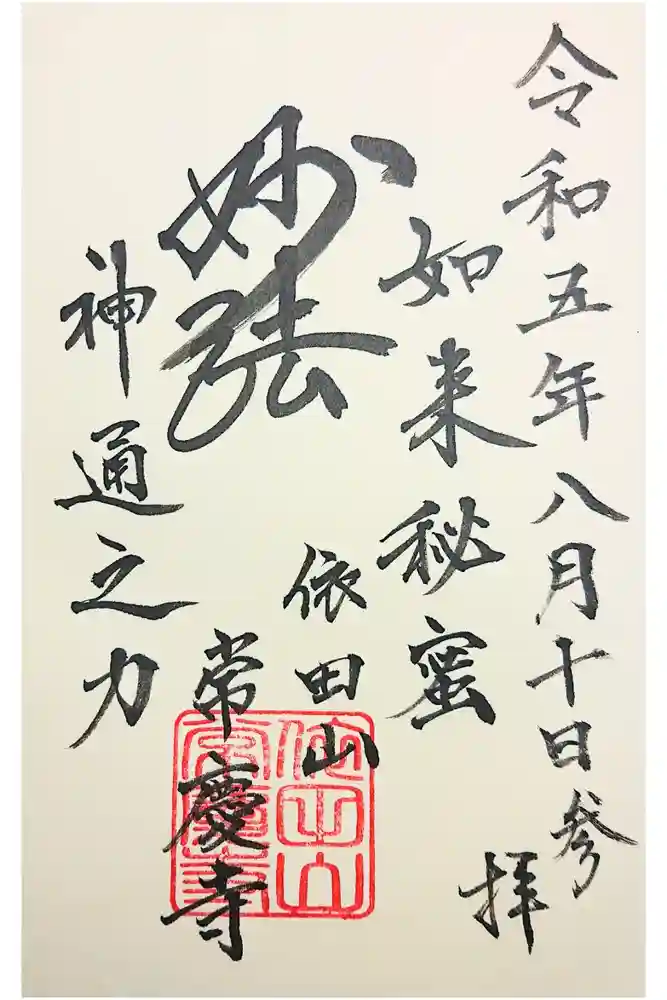 令和五年八月十日参拝
如来秘蜜
妙法
神通之力
依田山
常慶寺
依田山
常慶寺